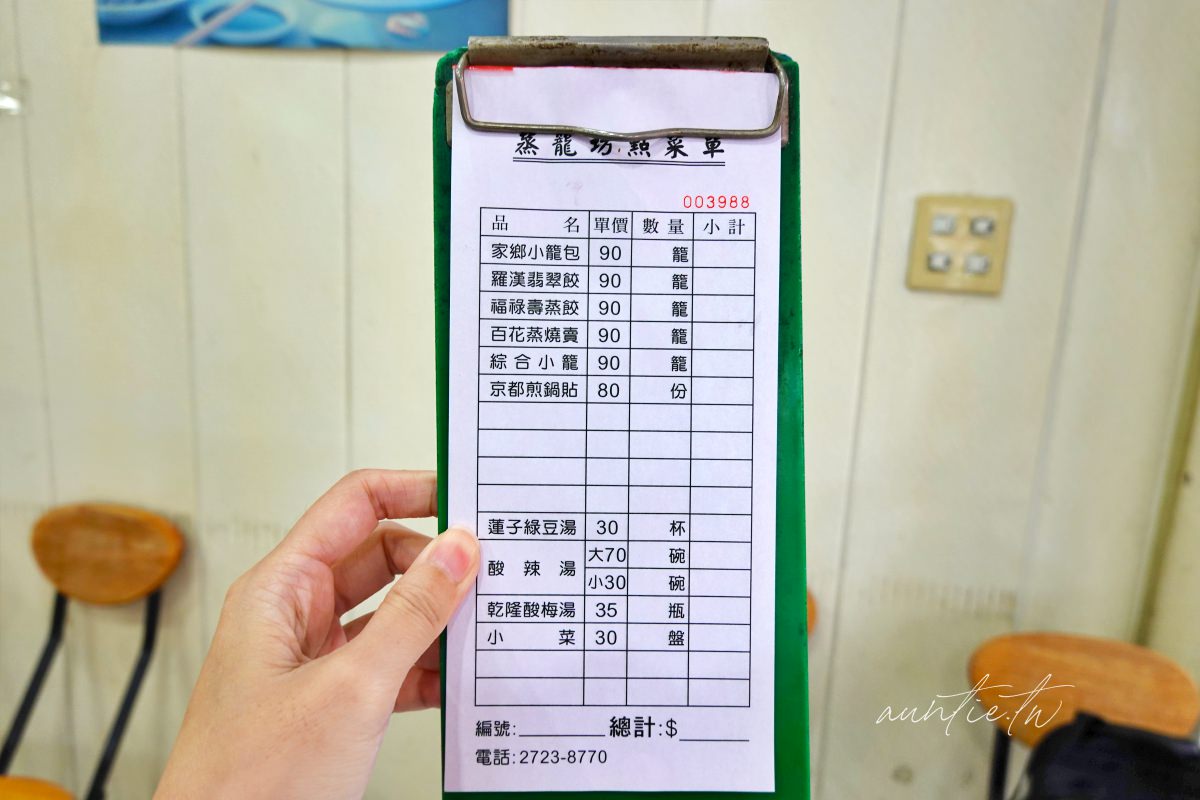 蒸龍坊點菜單
003988
品名 單價 數量 小計
家鄉小籠包 90 籠
羅漢翡翠餃 90 籠
福祿壽蒸餃 90 籠
百花蒸燒賣 90 籠
綜合小籠 90 籠
京都煎鍋貼 80 份
蓮子綠豆湯 30 杯
酸辣湯 大70 碗
小30 碗
乾隆酸梅湯 35 瓶
小菜 30 盤
編號: 總計:$
電話:2723-8770
auntie.tw